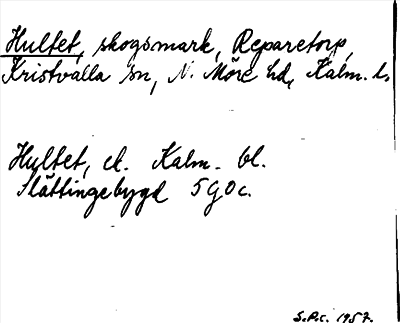 Hultet, skogsmark, Reparetorp,
Kristvalla sn, N. Möre hd, Kalm. l.
Hultet, ek. Kalm. bl.
Slättingebygd 5G0c.
S.P.C. 1957.